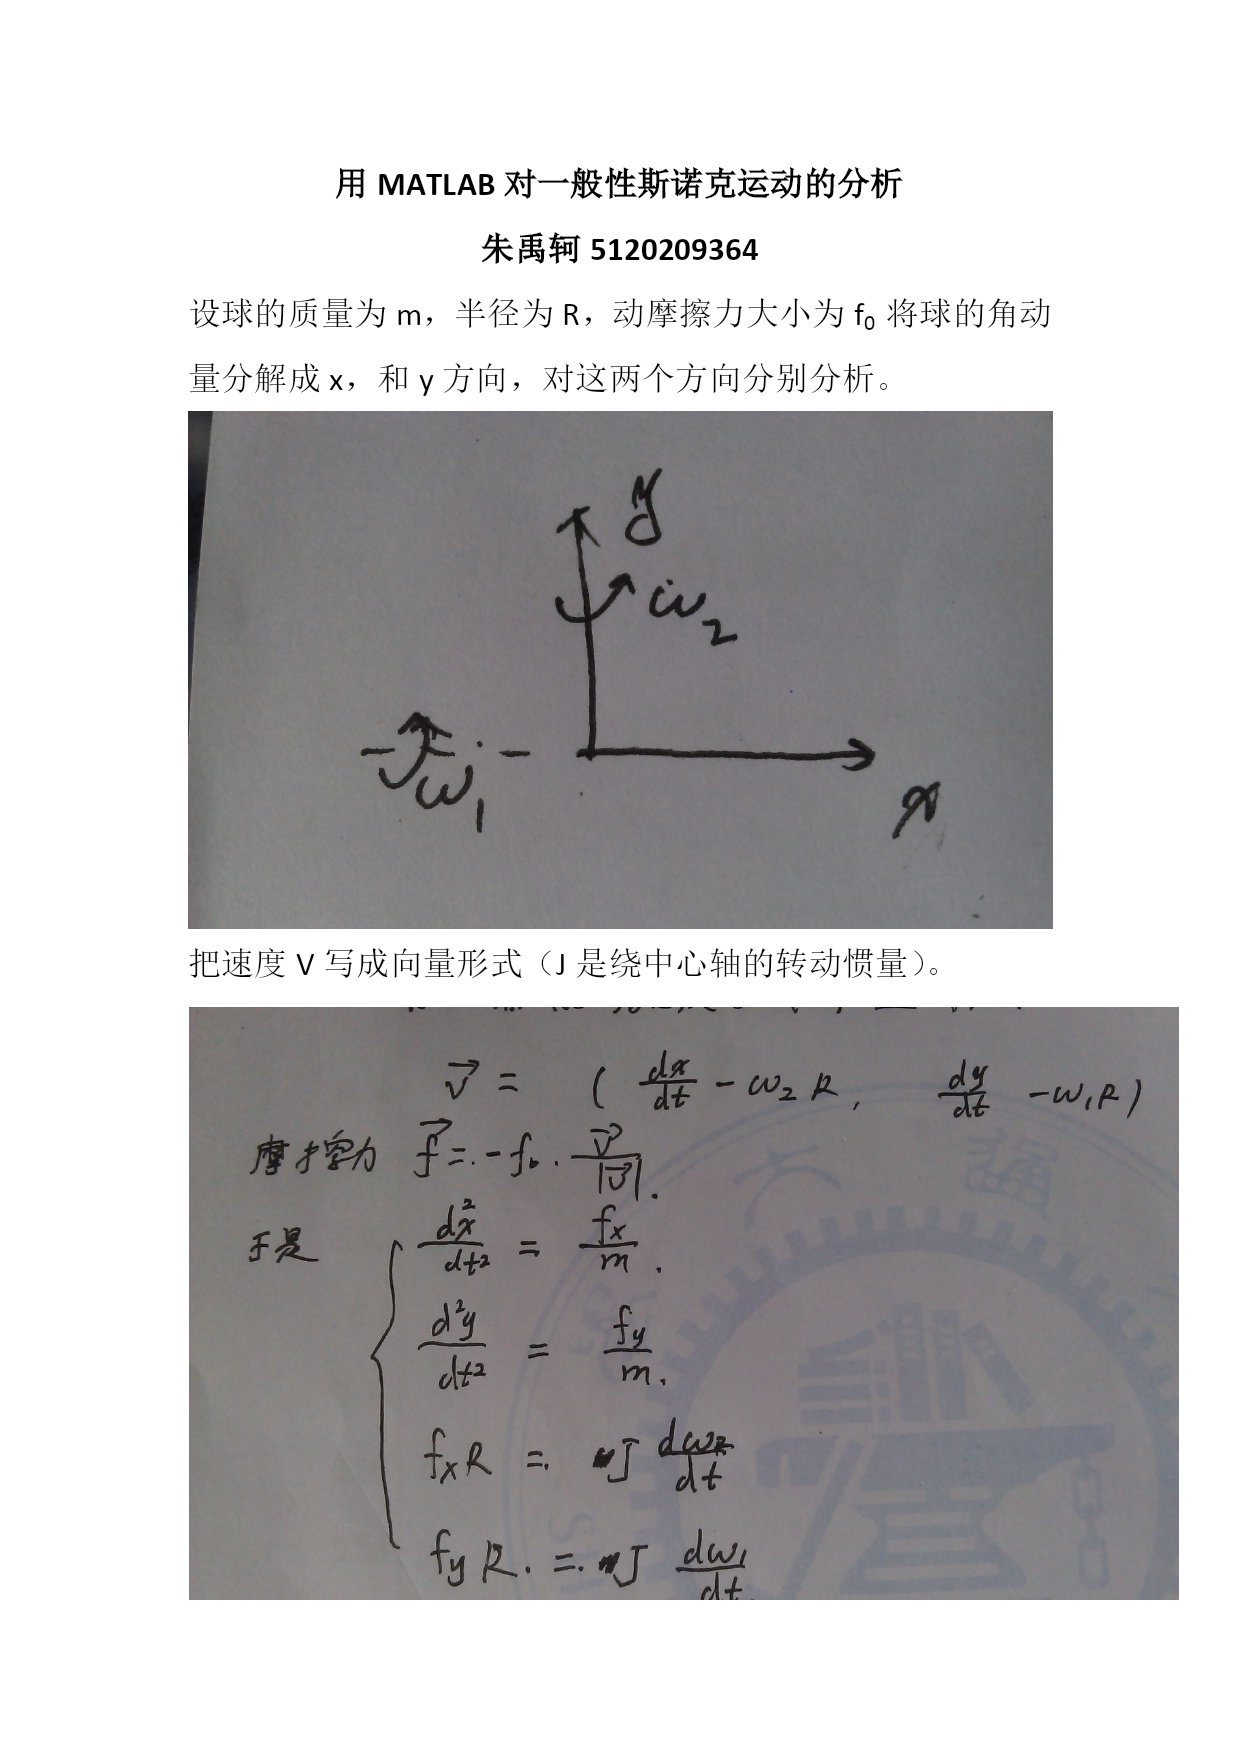 用 MATLAB 对一般性斯诺克运动的分析
朱禹轲 5120209364
设球的质量为 m，半径为 R，动摩擦力大小为 f₀ 将球的角动
量分解成 x，和 y 方向，对这两个方向分别分析。
y
ω₂
ω₁
x
把速度 V 写成向量形式（J 是绕中心轴的转动惯量）。
v⃗ = ( dx/dt - ω₂ R, dy/dt - ω₁R )
摩擦力 f⃗ = - f₀ · v⃗/|v⃗|.
于是 d²x/dt² = fx/m.
d²y/dt² = fy/m.
fxR = J dω₂/dt
fyR. = J dω₁/dt.